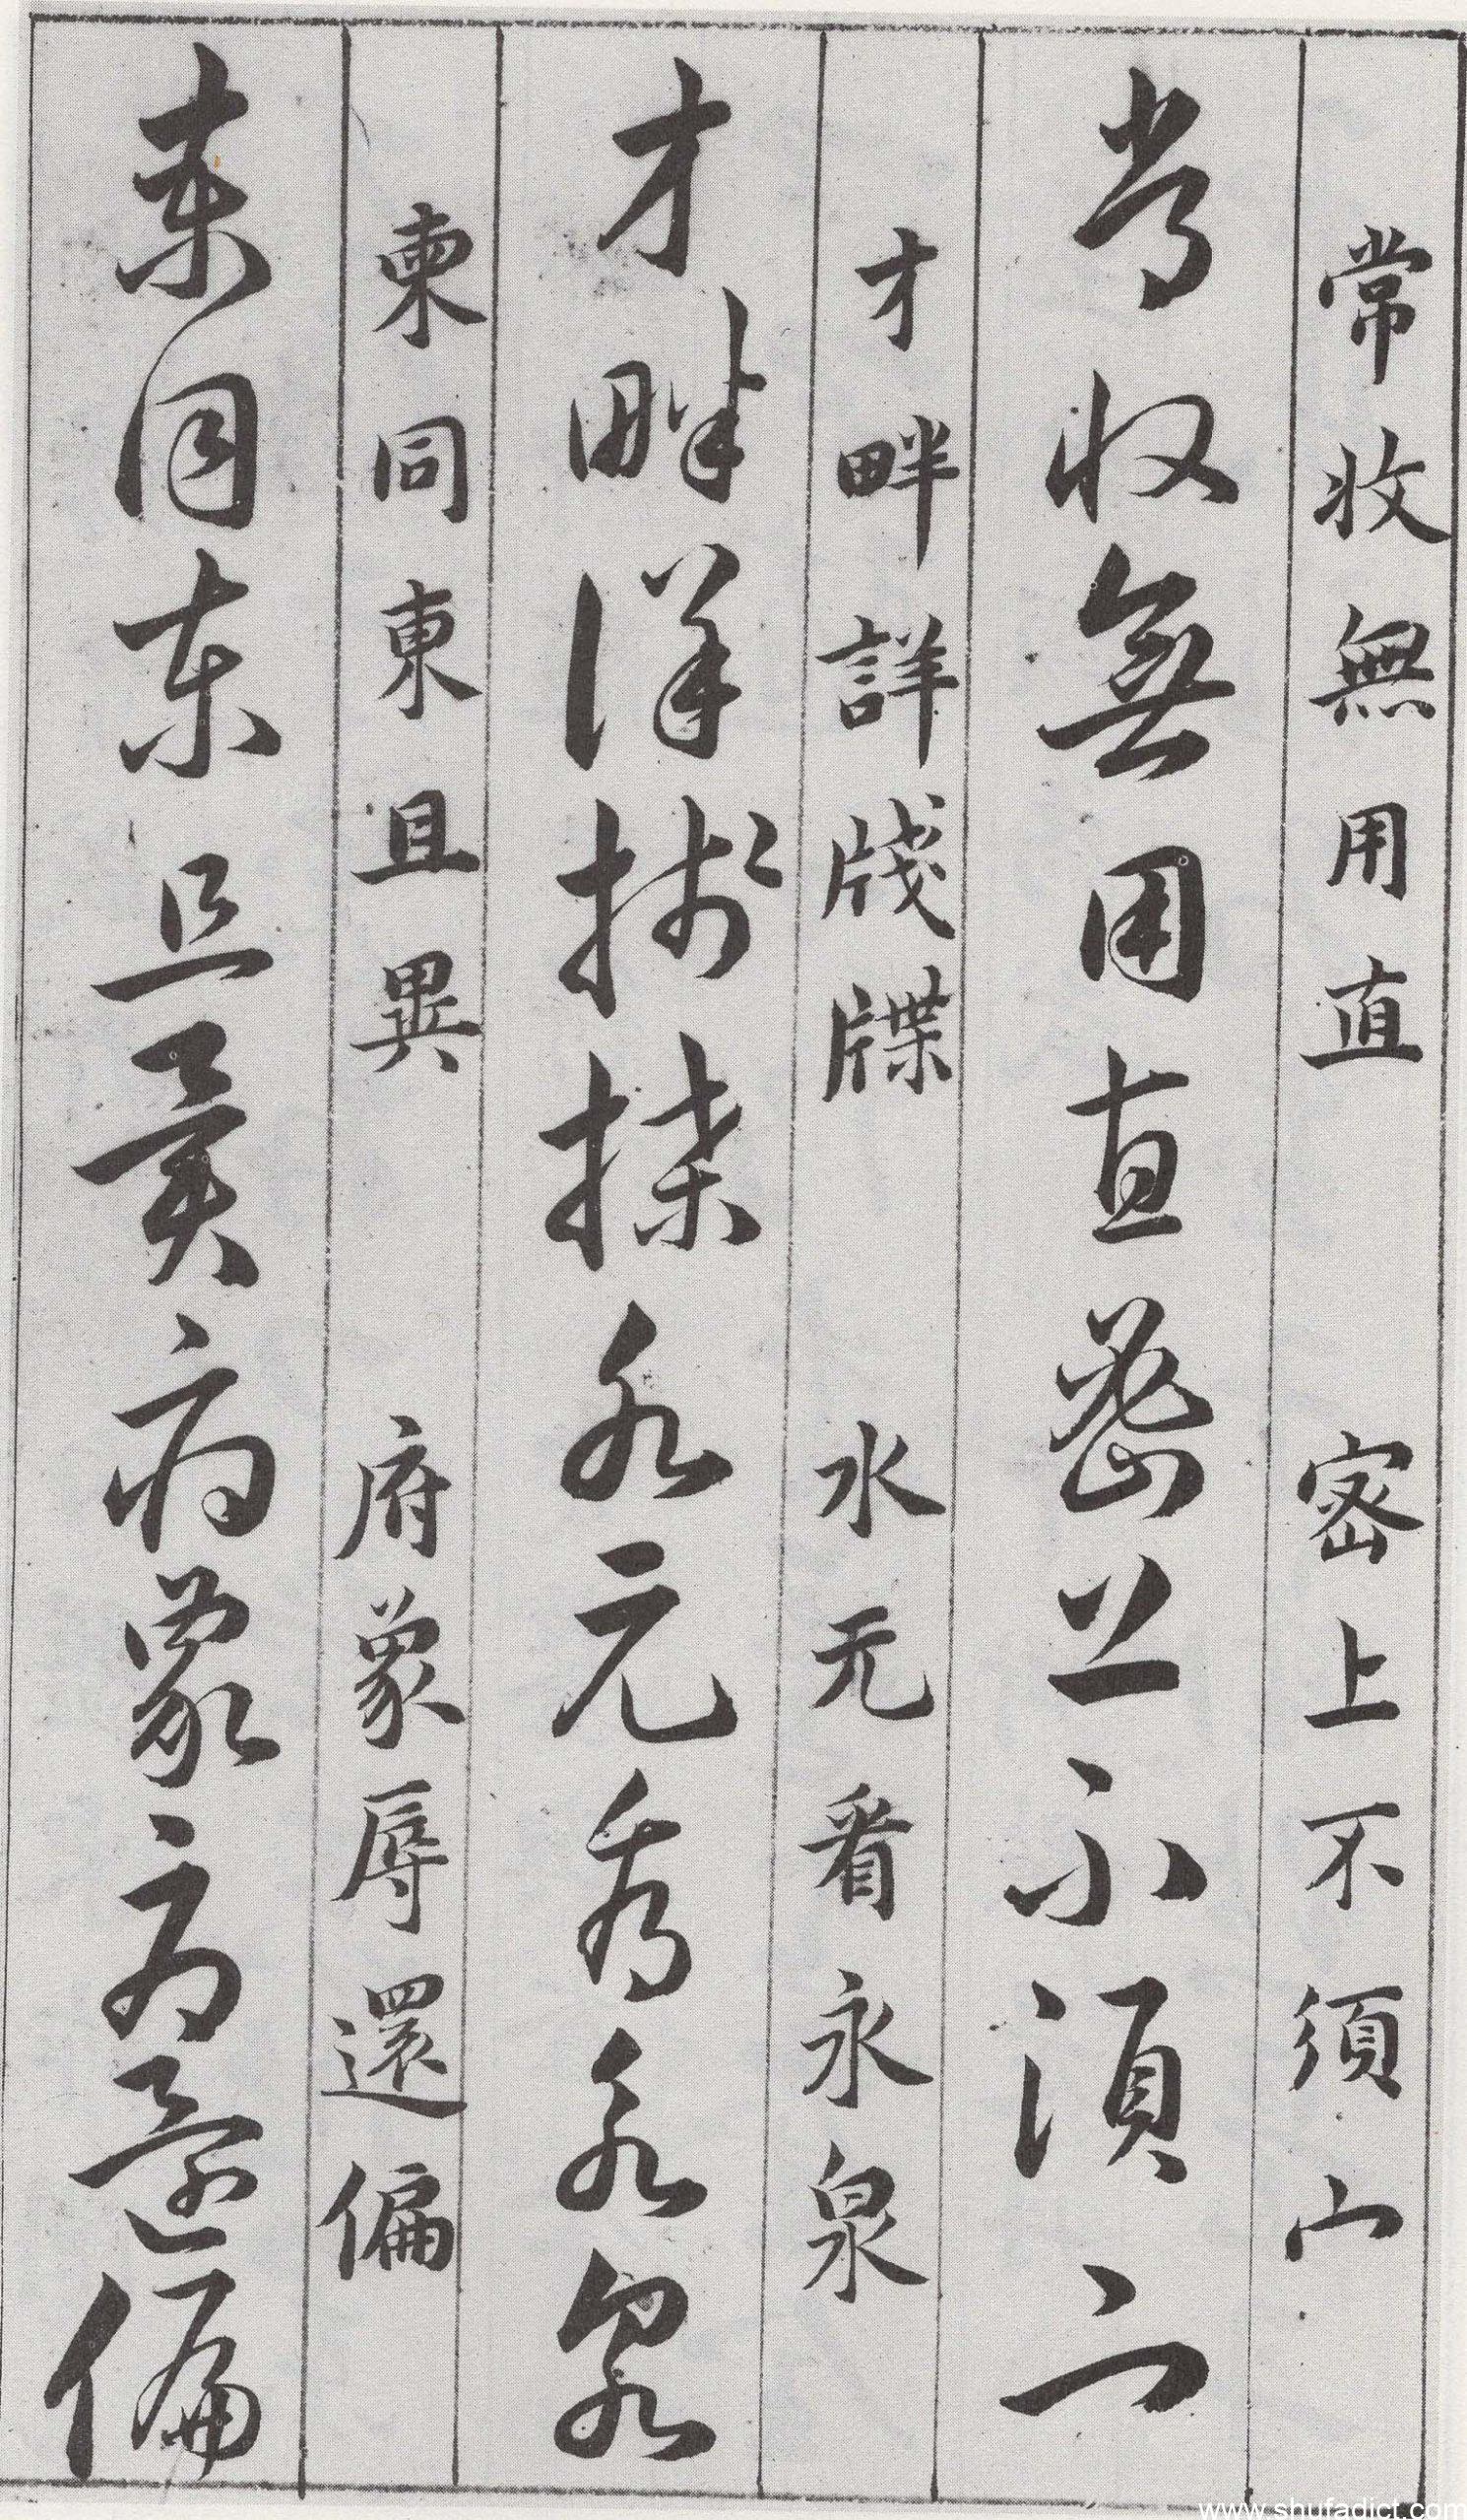 常收無用直 密上不須宀
常收無用直密上不須宀
才畔詳牋牒 水元看永泉
才畔詳牋牒水元看永泉
柬同東且異 府象辱還偏
柬同東且異府象辱還偏
www.shufadict.com